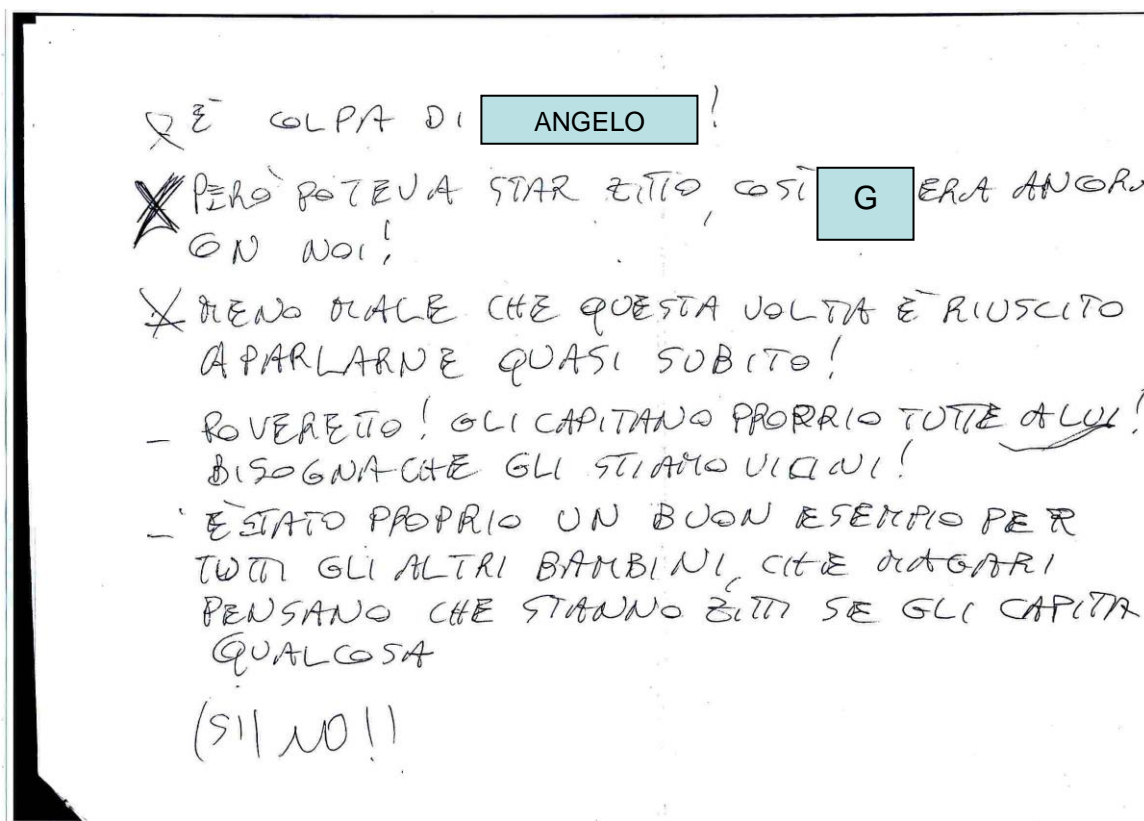 È COLPA DI ANGELO !
PERÒ POTEVA STAR ZITTO, COSÌ G ERA ANCORA
CON NOI!
MENO MALE CHE QUESTA VOLTA È RIUSCITO
A PARLARNE QUASI SUBITO!
– POVERETTO! GLI CAPITANO PROPRIO TUTTE A LUI!
BISOGNA CHE GLI STIAMO VICINI!
– È STATO PROPRIO UN BUON ESEMPIO PER
TUTTI GLI ALTRI BAMBINI, CHE MAGARI
PENSANO CHE STANNO ZITTI SE GLI CAPITA
QUALCOSA
(SI| NO!)